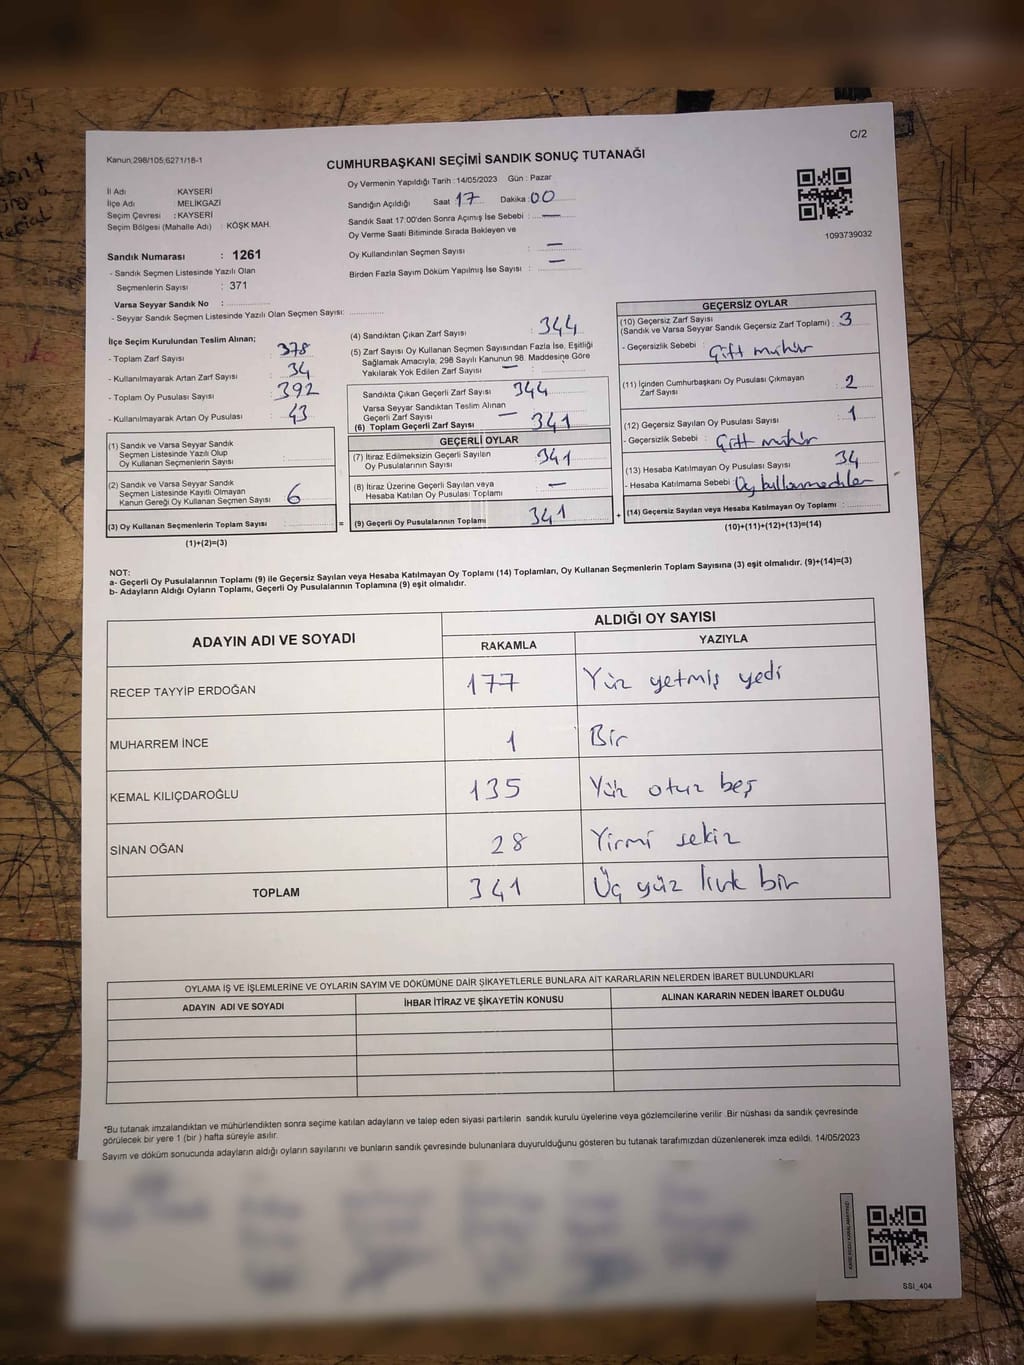 C/2
Kanun,298/105;6271/18-1
CUMHURBAŞKANI SEÇİMİ SANDIK SONUÇ TUTANAĞI
İl Adı : KAYSERİ
İlçe Adı : MELİKGAZİ
Seçim Çevresi : KAYSERİ
Seçim Bölgesi (Mahalle Adı) : KÖŞK MAH.
Oy Vermenin Yapıldığı Tarih : 14/05/2023 Gün : Pazar
Sandığın Açıldığı Saat 17 Dakika : 00
Sandık Saat 17:00'den Sonra Açımış İse Sebebi : —
Oy Verme Saati Bitiminde Sırada Bekleyen ve
Oy Kullandırılan Seçmen Sayısı : —
Birden Fazla Sayım Döküm Yapılmış İse Sayısı : —
1093739032
Sandık Numarası : 1261
- Sandık Seçmen Listesinde Yazılı Olan
Seçmenlerin Sayısı : 371
Varsa Seyyar Sandık No :
- Seyyar Sandık Seçmen Listesinde Yazılı Olan Seçmen Sayısı:
İlçe Seçim Kurulundan Teslim Alınan;
- Toplam Zarf Sayısı : 378
- Kullanılmayarak Artan Zarf Sayısı : 34
- Toplam Oy Pusulası Sayısı : 392
- Kullanılmayarak Artan Oy Pusulası : 43
(1) Sandık ve Varsa Seyyar Sandık
Seçmen Listesinde Yazılı Olup
Oy Kullanan Seçmenlerin Sayısı :
(2) Sandık ve Varsa Seyyar Sandık
Seçmen Listesinde Kayıtlı Olmayan
Kanun Gereği Oy Kullanan Seçmen Sayısı : 6
(3) Oy Kullanan Seçmenlerin Toplam Sayısı : =
(1)+(2)=(3)
(4) Sandıktan Çıkan Zarf Sayısı : 344
(5) Zarf Sayısı Oy Kullanan Seçmen Sayısından Fazla İse, Eşitliği
Sağlamak Amacıyla, 298 Sayılı Kanunun 98. Maddesine Göre
Yakılarak Yok Edilen Zarf Sayısı : —
Sandıkta Çıkan Geçerli Zarf Sayısı : 344
Varsa Seyyar Sandıktan Teslim Alınan
Geçerli Zarf Sayısı : —
(6) Toplam Geçerli Zarf Sayısı : 341
GEÇERLİ OYLAR
(7) İtiraz Edilmeksizin Geçerli Sayılan
Oy Pusulalarının Sayısı : 341
(8) İtiraz Üzerine Geçerli Sayılan veya
Hesaba Katılan Oy Pusulası Toplamı : —
(9) Geçerli Oy Pusulalarının Toplamı : 341 +
GEÇERSİZ OYLAR
(10) Geçersiz Zarf Sayısı
(Sandık ve Varsa Seyyar Sandık Geçersiz Zarf Toplamı) : 3
- Geçersizlik Sebebi : Çift mühür
(11) İçinden Cumhurbaşkanı Oy Pusulası Çıkmayan
Zarf Sayısı : 2
(12) Geçersiz Sayılan Oy Pusulası Sayısı : 1
- Geçersizlik Sebebi : Çift mühür
(13) Hesaba Katılmayan Oy Pusulası Sayısı : 34
- Hesaba Katılmama Sebebi : Oy kullanmadılar
(14) Geçersiz Sayılan veya Hesaba Katılmayan Oy Toplamı :
(10)+(11)+(12)+(13)=(14)
NOT:
a- Geçerli Oy Pusulalarının Toplamı (9) ile Geçersiz Sayılan veya Hesaba Katılmayan Oy Toplamı (14) Toplamları, Oy Kullanan Seçmenlerin Toplam Sayısına (3) eşit olmalıdır. (9)+(14)=(3)
b- Adayların Aldığı Oyların Toplamı, Geçerli Oy Pusulalarının Toplamına (9) eşit olmalıdır.
ADAYIN ADI VE SOYADI
ALDIĞI OY SAYISI
RAKAMLA YAZIYLA
RECEP TAYYİP ERDOĞAN 177 Yüz yetmiş yedi
MUHARREM İNCE 1 Bir
KEMAL KILIÇDAROĞLU 135 Yüz otuz beş
SİNAN OĞAN 28 Yirmi sekiz
TOPLAM 341 Üç yüz kırk bir
OYLAMA İŞ VE İŞLEMLERİNE VE OYLARIN SAYIM VE DÖKÜMÜNE DAİR ŞİKAYETLERLE BUNLARA AİT KARARLARIN NELERDEN İBARET BULUNDUKLARI
ADAYIN ADI VE SOYADI İHBAR İTİRAZ VE ŞİKAYETİN KONUSU ALINAN KARARIN NEDEN İBARET OLDUĞU
*Bu tutanak imzalandıktan ve mühürlendikten sonra seçime katılan adayların ve talep eden siyasi partilerin sandık kurulu üyelerine veya gözlemcilerine verilir .Bir nüshası da sandık çevresinde
görülecek bir yere 1 (bir ) hafta süreyle asılır.
Sayım ve döküm sonucunda adayların aldığı oyların sayılarını ve bunların sandık çevresinde bulunanlara duyurulduğunu gösteren bu tutanak tarafımızdan düzenlenerek imza edildi. 14/05/2023
SSI_404